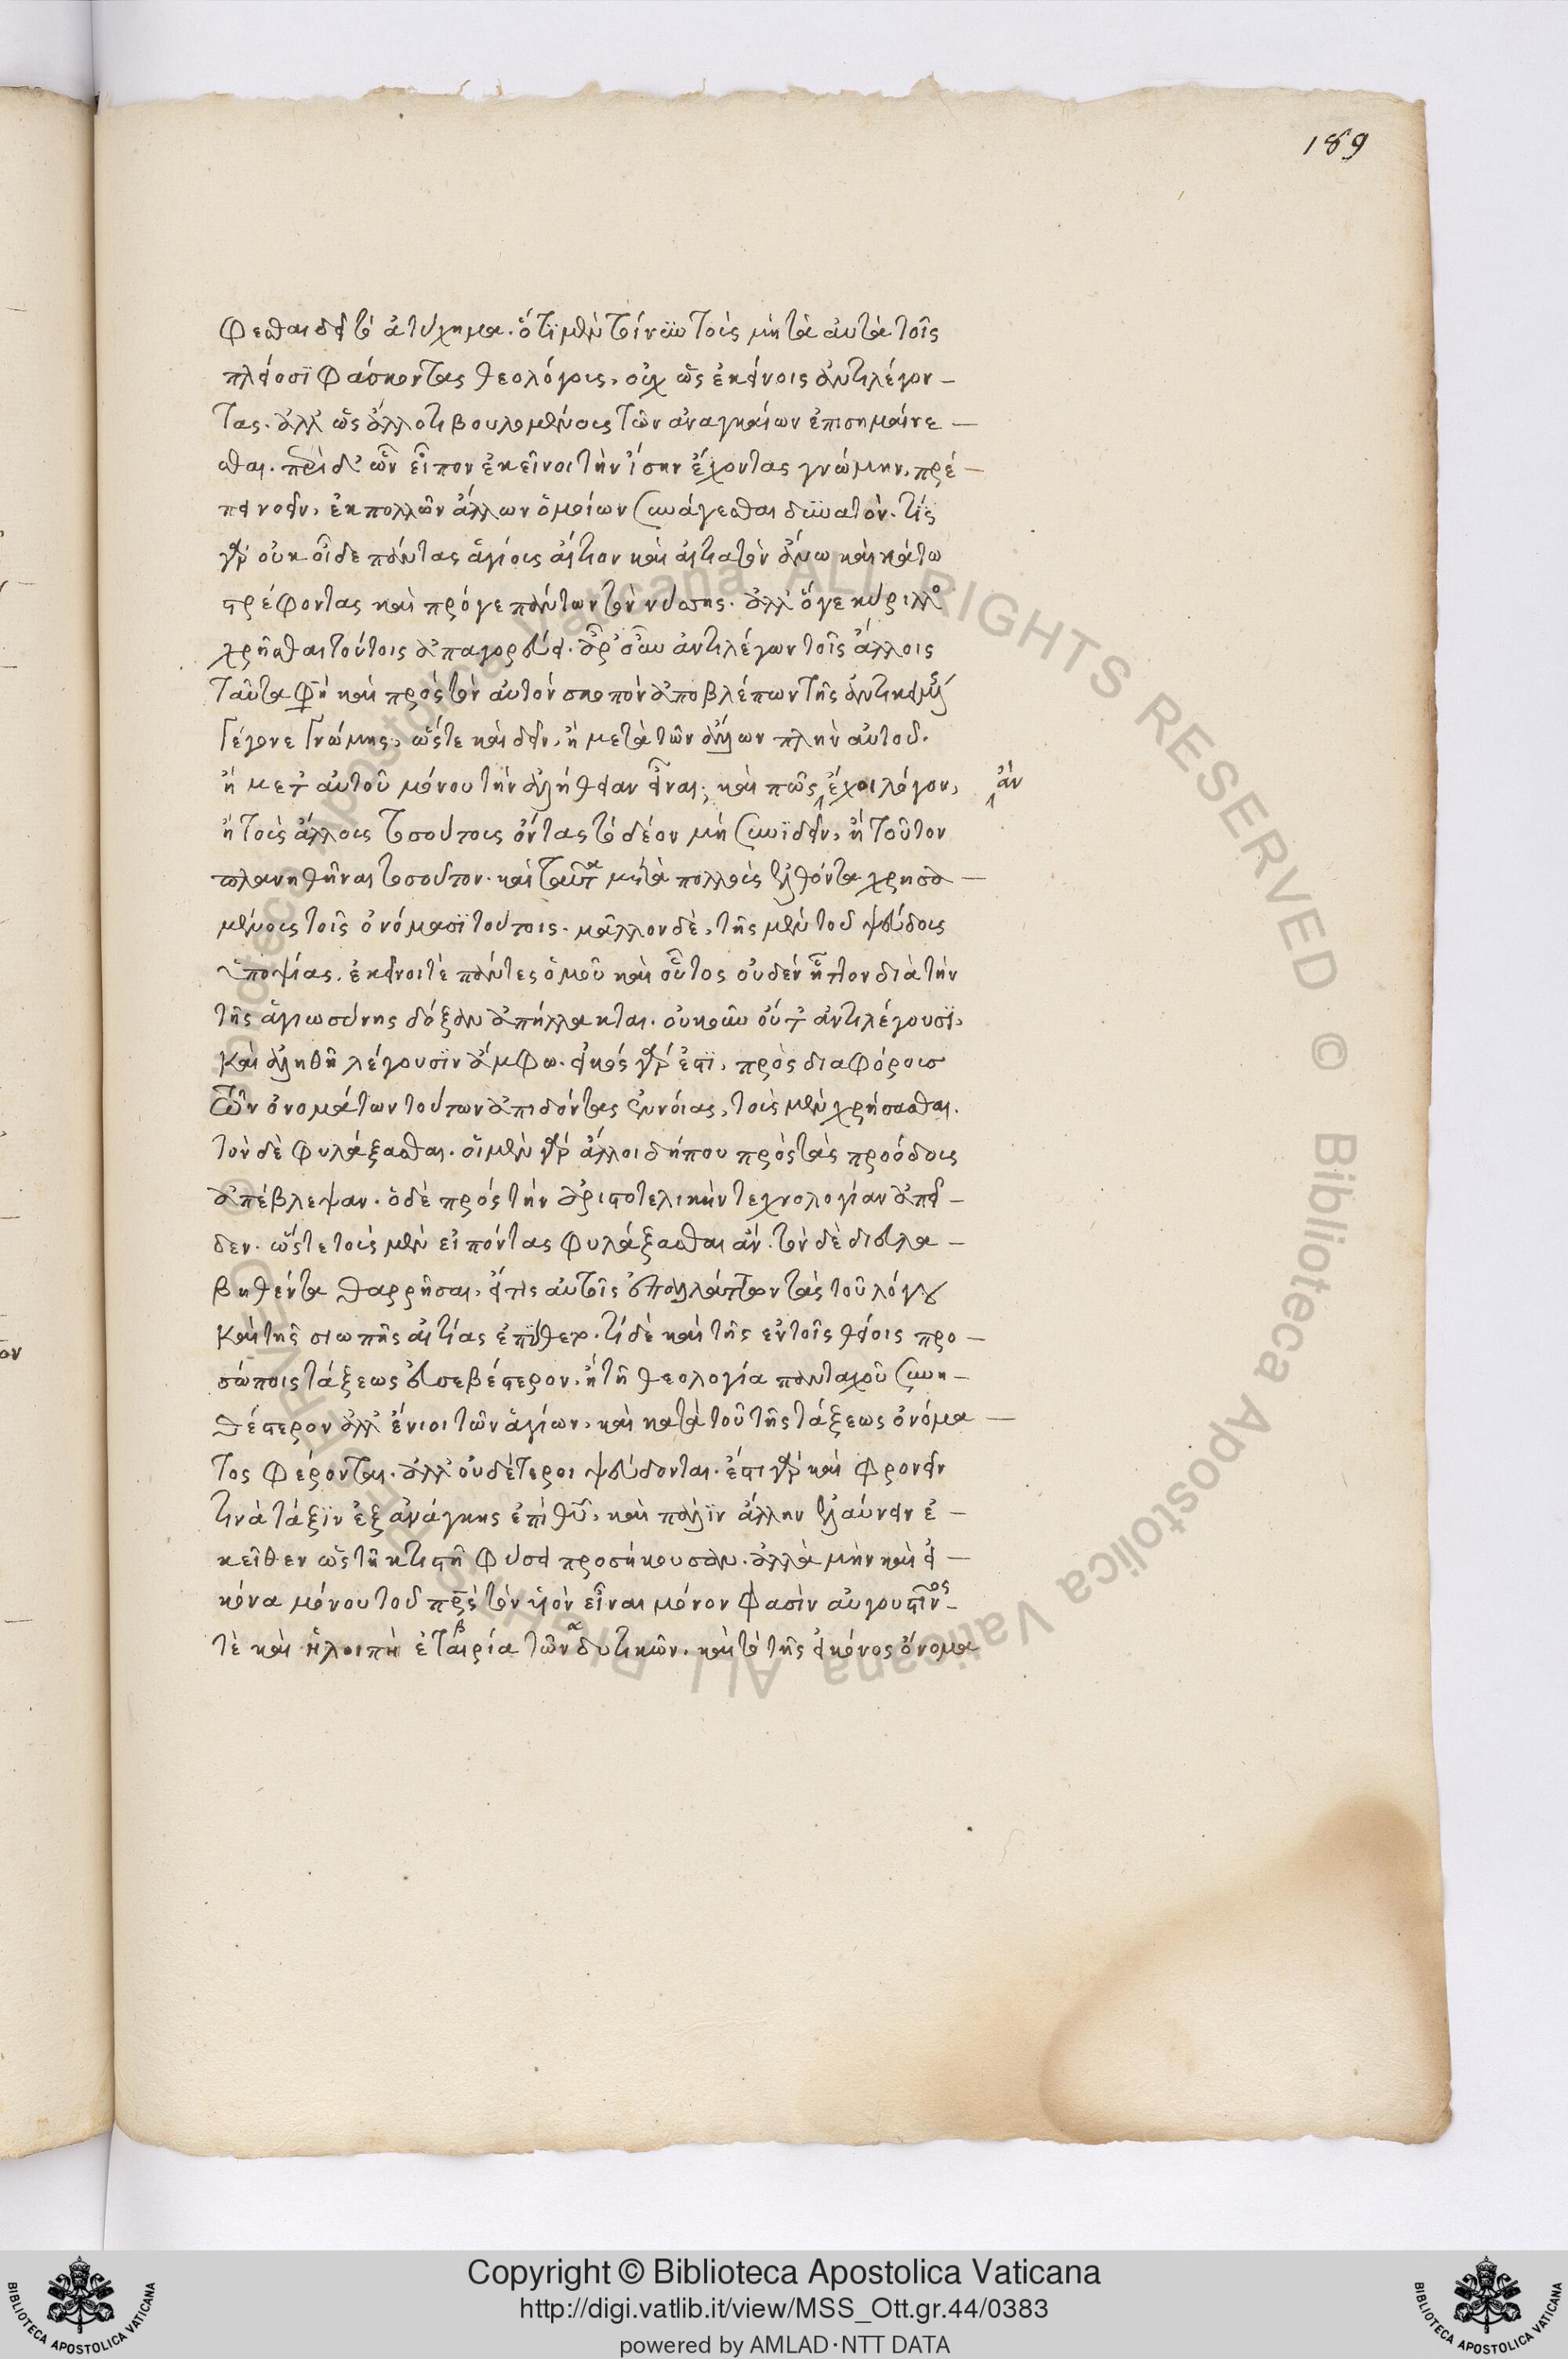 189
φεσθαι δεῖ τὸ ἀτύχημα. ὅτι μὲν τοίνυν τοὺς μὴ τὰ αὐτὰ τοῖς
πλείοσι φάσκοντας θεολόγους, οὐχ ὡς ἐκείνοις ἀντιλέγον-
τας. ἀλλ' ὡς ἄλλο τι βουλομένους τῶν ἀναγκαίων ἐπισημαίνε-
σθαι. περὶ δ' ὧν εἶπον ἐκεῖνοι τὴν ἴσην ἔχοντας γνώμην,
ἐκ πολλῶν ἄλλων ὁμοίων συνάγεσθαι δυνατόν. τίς
γὰρ οὐκ οἶδε πάντας ἁγίους αἴτιον καὶ αἰτιατὸν ἄνω καὶ κάτω
στρέφοντας καὶ πρό γε πάντων τὸν νύσσης. ἀλλ' ὅγε κύριλλος
χρῆσθαι τούτοις ἀπαγορεύει. ἆρ' οὖν ἀντιλέγων τοῖς ἄλλοις
ταῦτα φησὶ καὶ πρὸς τὸν αὐτὸν σκοπὸν ἀποβλέπων τῆς ἀντικειμένης
γέγονε γνώμης, ὥστε καὶ δεῖν, ἢ μετὰ τῶν ἄλλων πλὴν αὐτοῦ.
ἢ μετ' αὐτοῦ μόνου τὴν ἀλήθειαν εἶναι; καὶ πῶς ἔχοι λόγον, ἂν
ἢ τοὺς ἄλλους τοσούτους ὄντας τὸ δέον μὴ συνϊδεῖν, ἢ τοῦτον
πλανηθῆναι τοσοῦτον. καὶ ταῦτα μετὰ πολλοὺς ἐλθόντα χρησα-
μένους τοῖς ὀνόμασι τούτοις. μᾶλλον δὲ, τῆς μὲν τοῦ ψεύδους
ὑποψίας, ἐκεῖνοι τὲ πάντες ὁμοῦ καὶ οὗτος οὐδὲν ἧττον διὰ τὴν
τῆς ἁγιωσύνης δόξαν ἀπήλλακται. οὐκοῦν οὔτ' ἀντιλέγουσι,
καὶ ἀληθῆ λέγουσιν ἄμφω. εἰκὸς γάρ ἐστι, πρὸς διαφόρους
τῶν ὀνομάτων τούτων ἀπιδόντας ἐννοίας, τοὺς μὲν χρήσασθαι.
τὸν δὲ φυλάξασθαι. οἱ μὲν γὰρ ἄλλοι δήπου πρὸς τὰς προόδους
ἀπέβλεψαν. ὁ δὲ πρὸς τὴν ἀριστοτελικὴν τεχνολογίαν ἀπεῖ-
δεν. ὥστε τοὺς μὲν εἰπόντας φυλάξασθαι ἄν. τὸν δὲ διευλα-
βηθέντα θαρρῆσαι, εἴ τις αὐτοῖς τὰς τοῦ λόγου
καὶ τῆς σιωπῆς αἰτίας ἐπύθετο. τί δὲ καὶ τῆς ἐν τοῖς θείοις προ-
σώποις τάξεως εὐσεβέστερον, ἢ τῇ θεολογία πανταχοῦ συνη-
θέστερον ἀλλ' ἔνιοι τῶν ἁγίων, καὶ κατὰ τοῦ τῆς τάξεως ὀνόμα-
τος φέρονται. ἀλλ' οὐδέτεροι ψεύδονται. ἔστι γὰρ καὶ φρονεῖν
τινὰ τάξιν ἐξ ἀνάγκης ἐπὶ θεοῦ, καὶ πάλιν ἄλλην ἐλαύνειν ἐ-
κεῖθεν ὡς τῇ κτιστῇ φύσει προσήκουσαν. ἀλλὰ μὴν καὶ εἰ-
κόνα μόνου τοῦ πρὸς τὸν υἱὸν εἶναι μόνον φασὶν αὐγουστῖνος
τὲ καὶ ἡ λοιπὴ ἑταιρία τῶν δυτικῶν. καὶ τὸ τῆς εἰκόνος ὄνομα
Copyright © Biblioteca Apostolica Vaticana
http://digi.vatlib.it/view/MSS_Ott.gr.44/0383
powered by AMLAD·NTT DATA